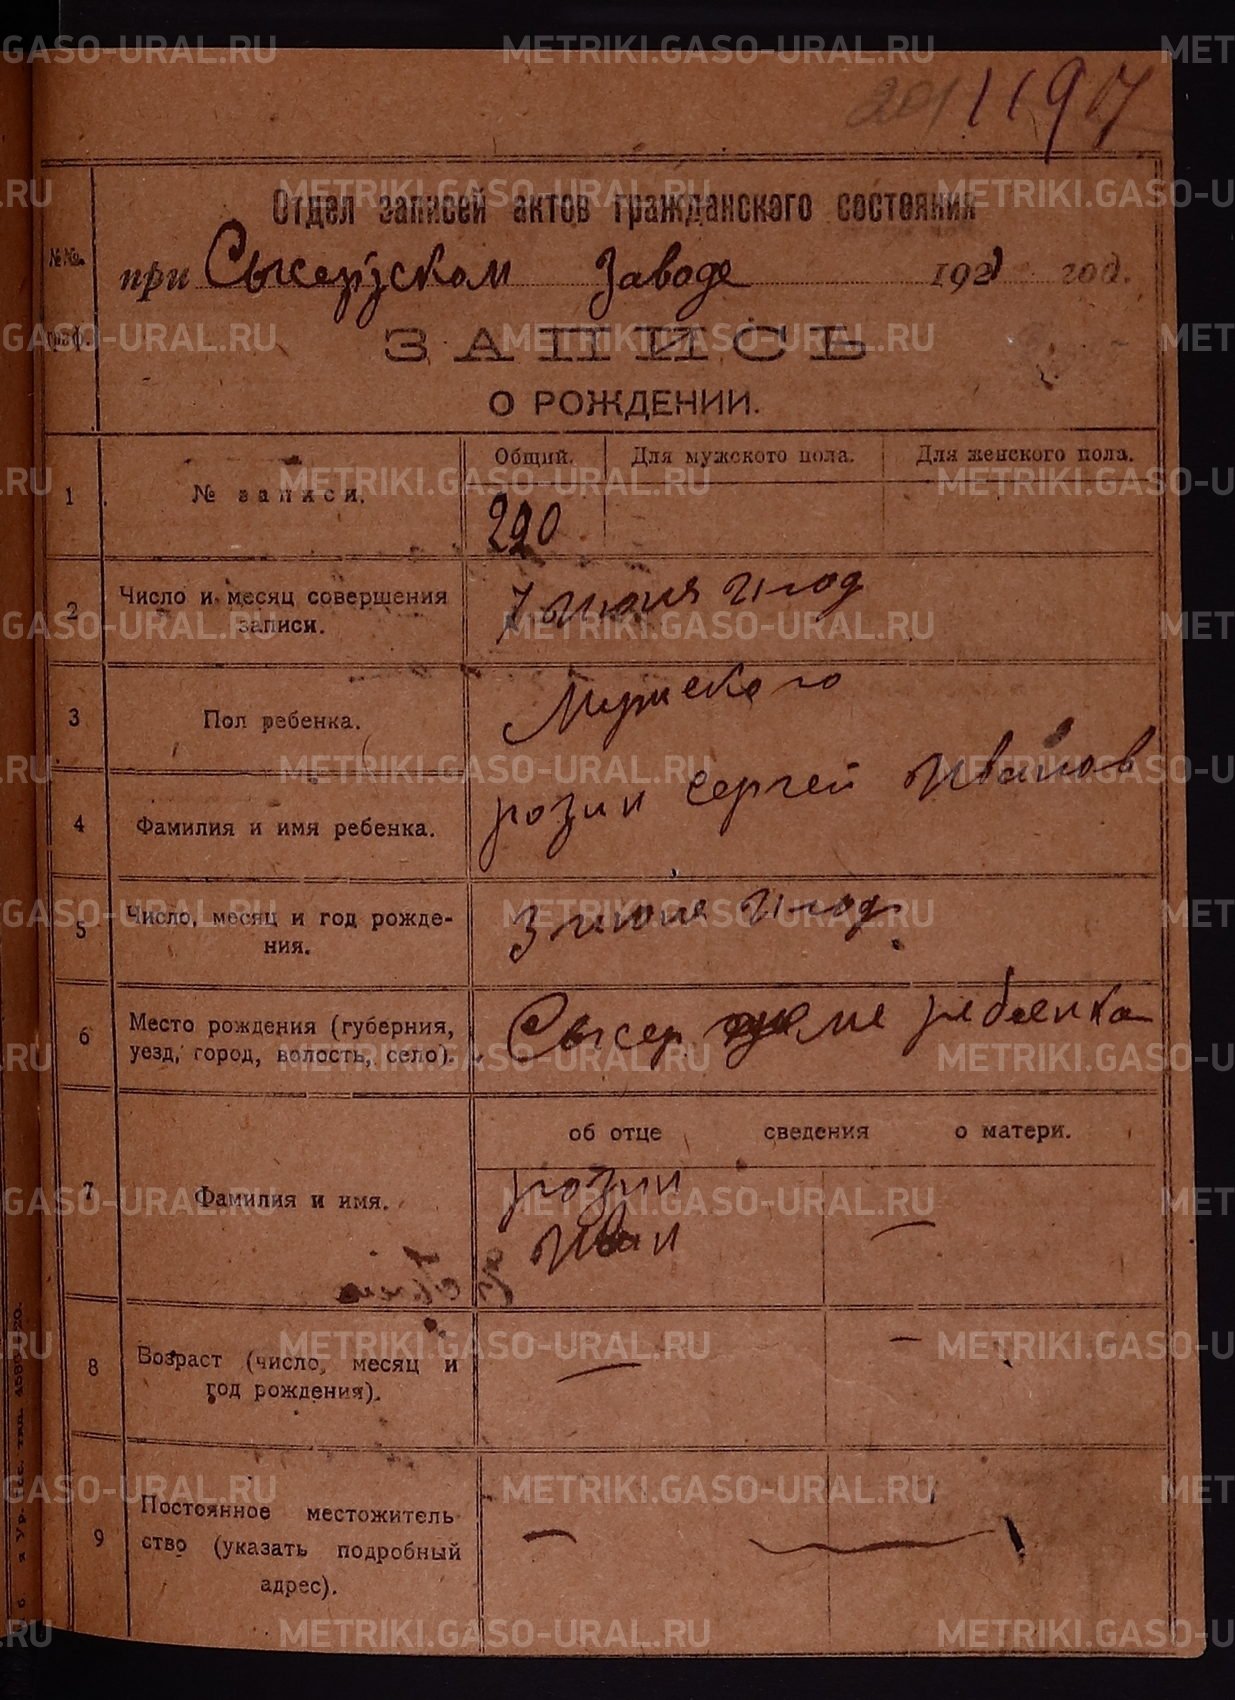 1197
Отдел записей актов гражданского состояния
№№
граф.
при Сысертском Заводе 1921 год.
ЗАПИСЬ
О РОЖДЕНИИ.
1 № записи. Общий. Для мужского пола. Для женского пола.
220
2 Число и месяц совершения записи. 7 июня 21 год
3 Пол ребенка. Мужского
4 Фамилия и имя ребенка. розин Сергей Иванов
5 Число, месяц и год рождения. 3 июня 21 год.
6 Место рождения (губерния, уезд, город, волость, село). Сысер ребенка
об отце сведения о матери.
7 Фамилия и имя. розин
Иван —
8 Возраст (число, месяц и год рождения). — —
9 Постоянное местожительство (указать подробный адрес). — —
METRIKI.GASO-URAL.RU